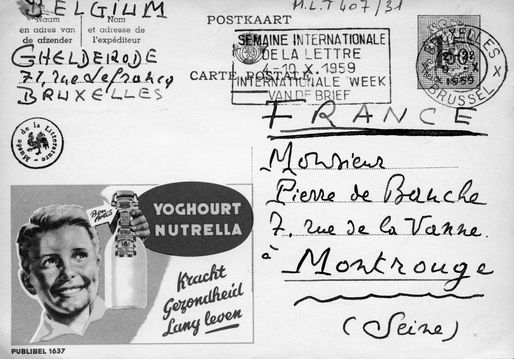 BELGIUM
M.L.T 407/31
Naam
en adres van
de afzender
Nom
et adresse de
l'expéditeur
POSTKAART
CARTE POSTALE
GHELDERODE
71, rue Lefrancq
BRUXELLES
SEMAINE INTERNATIONALE
DE LA LETTRE
4-10 X. 1959
INTERNATIONALE WEEK
VAN DE BRIEF
BRUXELLES X
1959
BRUSSEL X
Musée de la Littérature
FRANCE
Monsieur
Pierre de Bauche
7, rue de la Vanne
à Montrouge
(Seine)
YOGHOURT
NUTRELLA
Kracht
Gezondheid
Lang leven
PUBLIBEL 1637